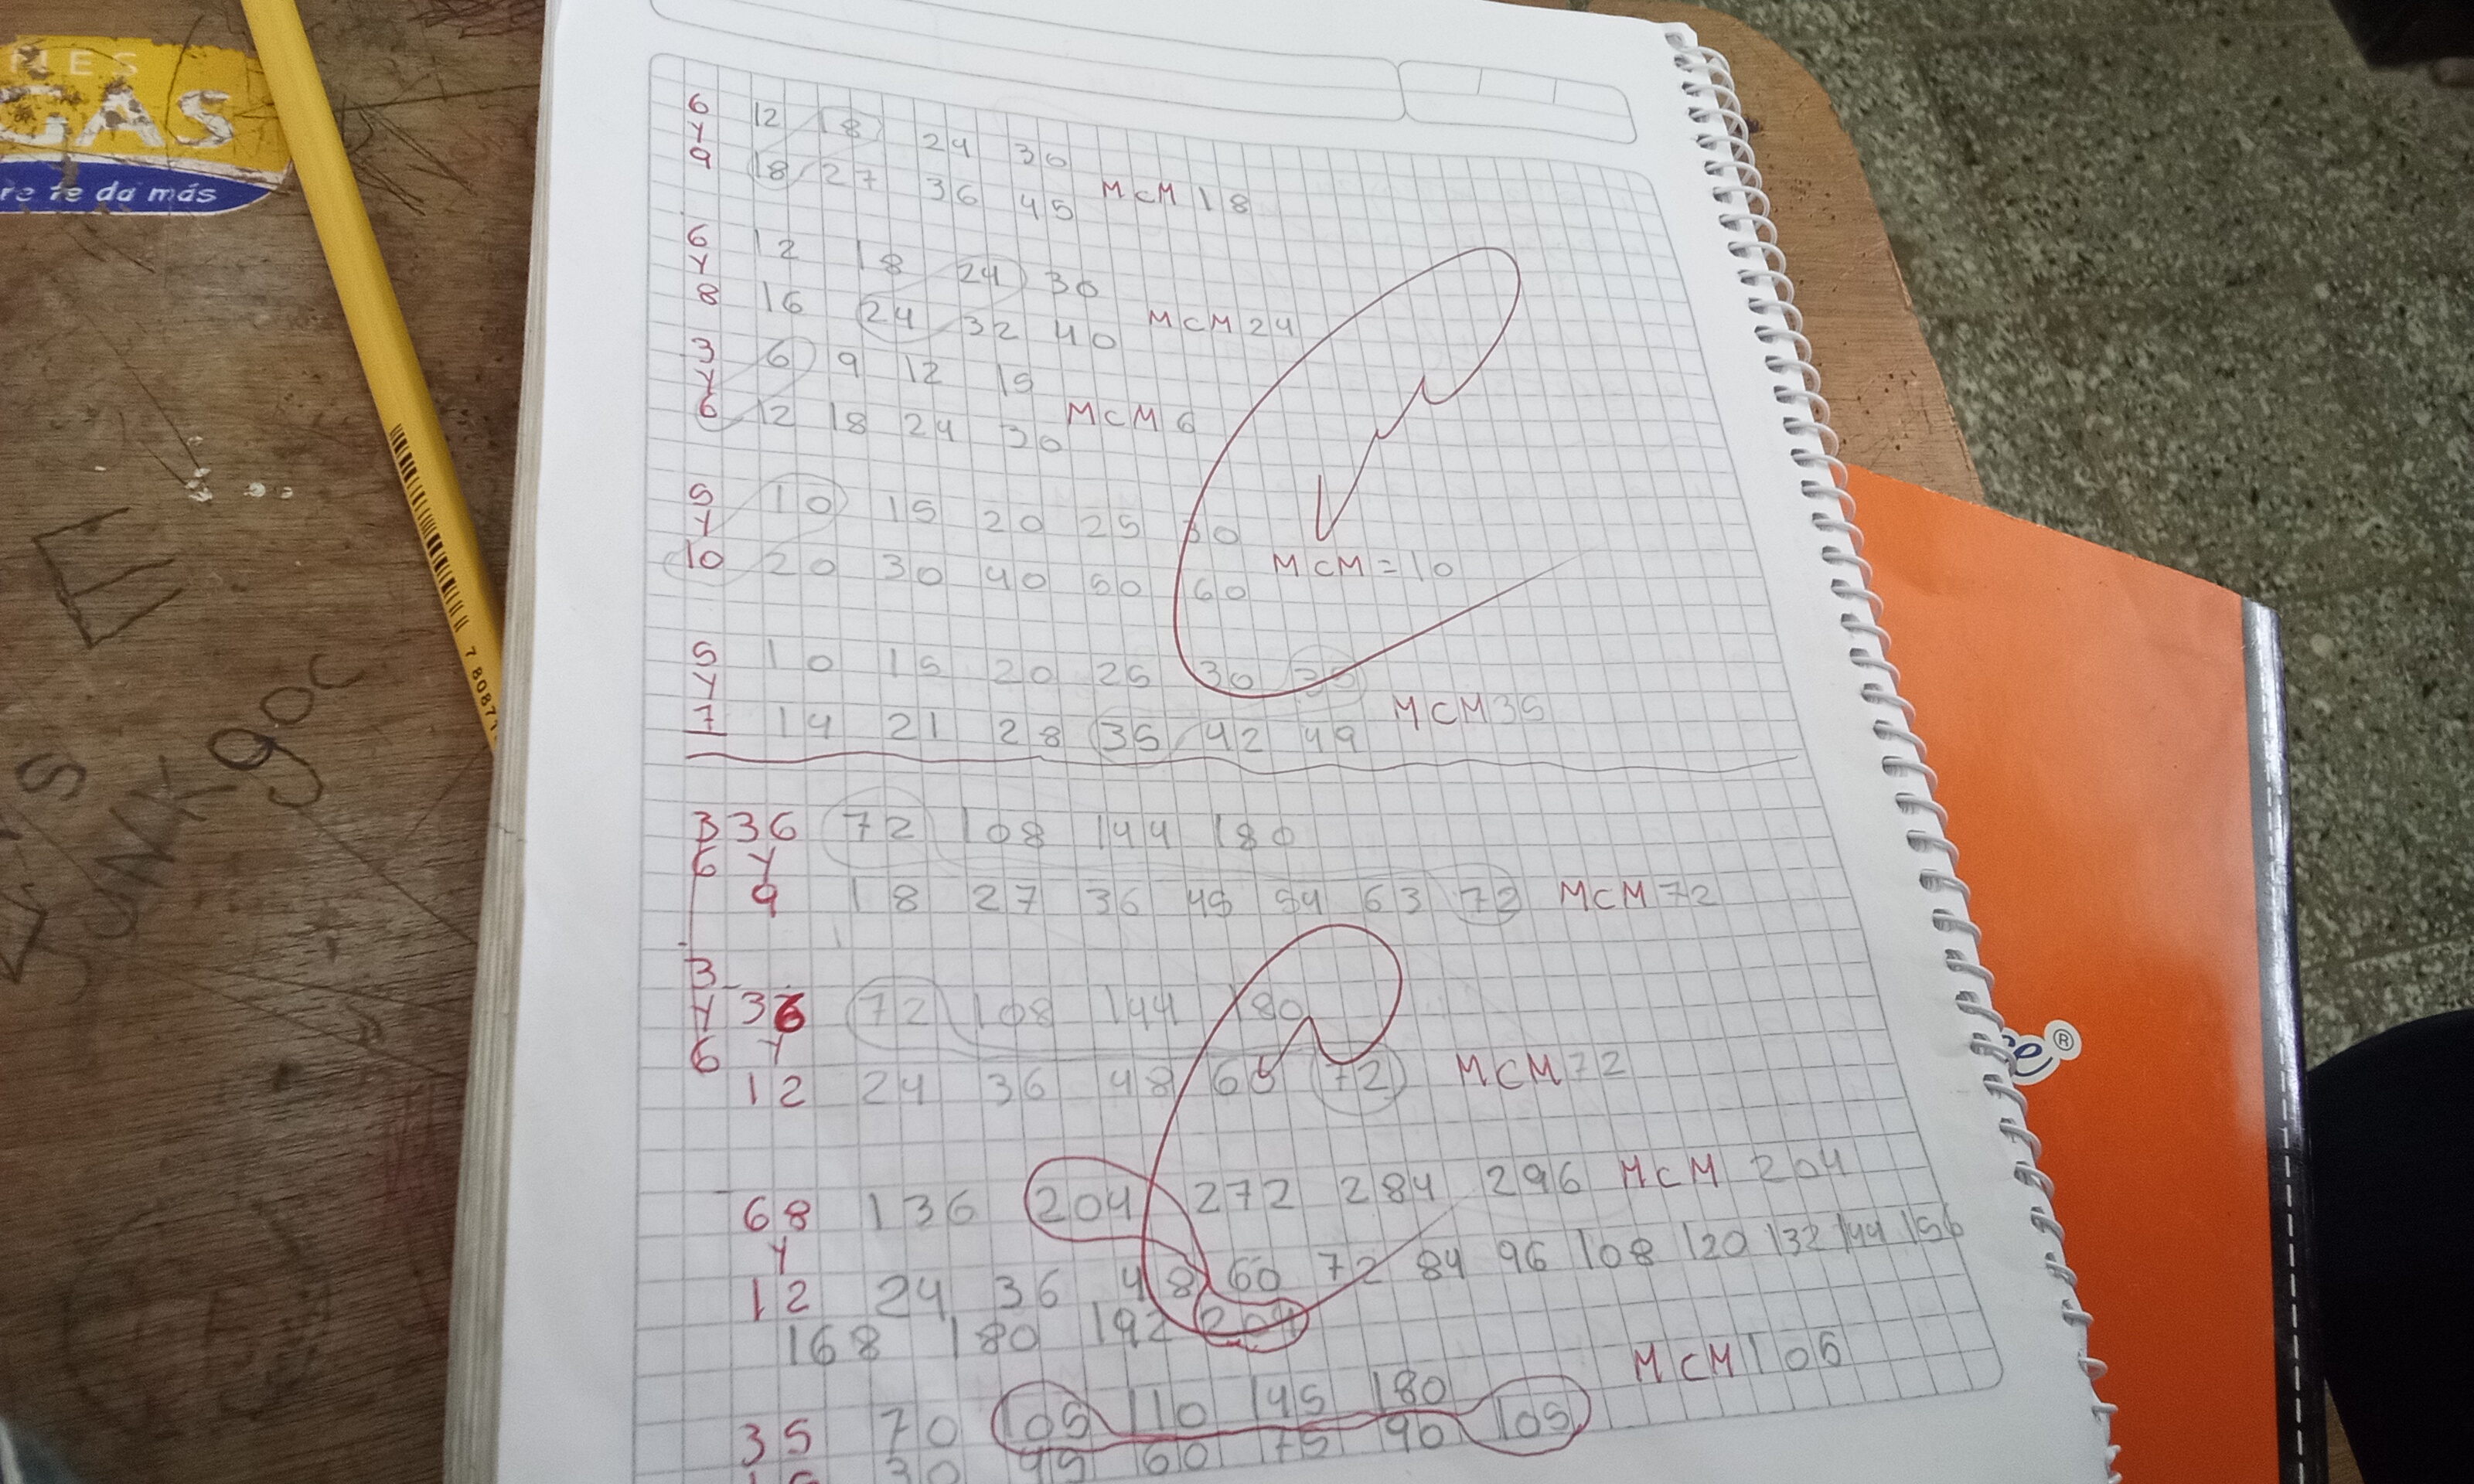 NES
GAS
re te da más
7 8087
goc
6 12 18 24 30
Y
9 18 27 36 45 MCM 18
6 12 18 24 30
Y
8 16 24 32 40 MCM 24
3 6 9 12 15
Y
6 12 18 24 30 MCM 6
5 10 15 20 25 30
Y
10 20 30 40 50 60 MCM=10
5 10 15 20 25 30 35
Y
7 14 21 28 35 42 49 MCM 35
3 36 72 108 144 180
6 Y
9 18 27 36 45 54 63 72 MCM 72
3
Y 36 72 108 144 180
6 Y
12 24 36 48 60 72 MCM 72
68 136 204 272 284 296 MCM 204
Y
12 24 36 48 60 72 84 96 108 120 132 144 156
168 180 192 204
35 70 105 110 145 180 MCM 105
30 45 60 75 90 105
®